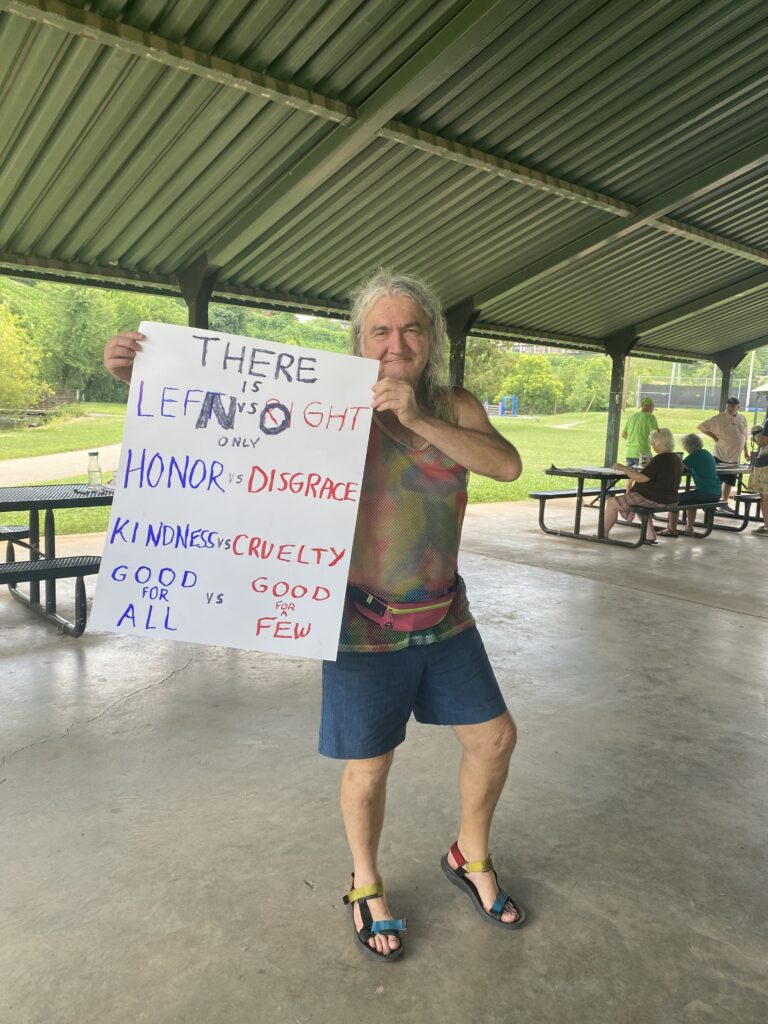 THERE
IS
LEFT NO VS RIGHT
ONLY
HONOR VS DISGRACE
KINDNESS VS CRUELTY
GOOD FOR ALL VS GOOD FOR A FEW